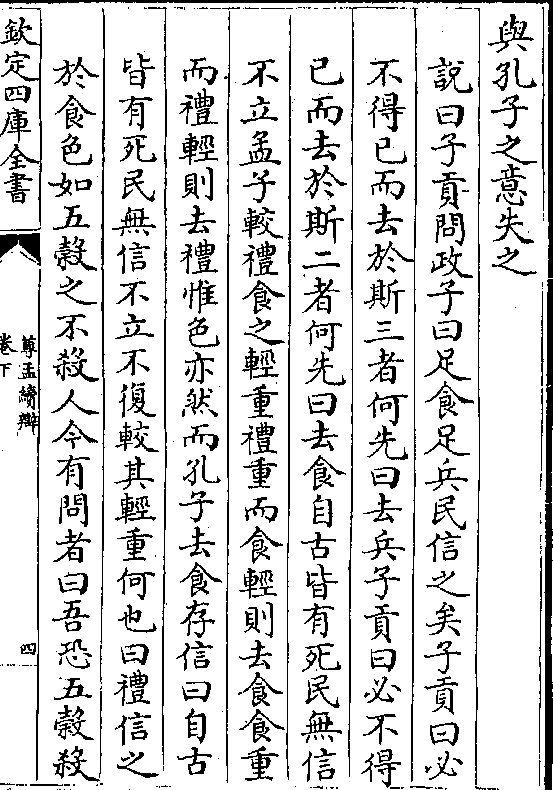 與孔子之意失之
說曰子貢問政子曰足食足兵民信之矣子貢曰必
不得已而去於斯三者何先曰去兵子貢曰必不得
已而去於斯二者何先曰去食自古皆有死民無信
不立孟子較禮食之輕重禮重而食輕則去食食重
而禮輕則去禮惟色亦然而孔子去食存信曰自古
皆有死民無信不立不復較其輕重何也曰禮信之
於食色如五穀之不殺人今有問者曰吾恐五穀殺
欽定四庫全書
尊孟續辯
卷下
四